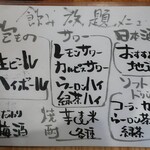 飲み放題メニュー
生ビール
ハイボール
梅酒
サワー
レモンサワー
カルピスサワー
ウーロンハイ
緑茶ハイ
焼酎
各種
日本酒
おすすめ
地酒
ソフトドリンク
コーラ
ウーロン茶
緑茶